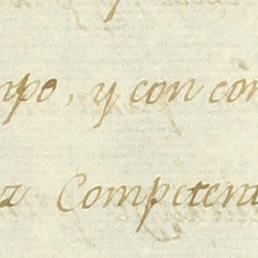 mpo, y con con
z Competent